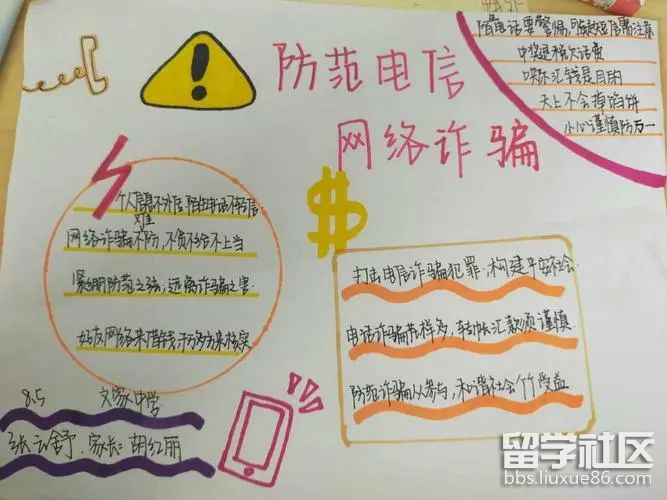 防范电信
网络诈骗
陌电话要警惕,可疑短信需注意
中奖退税欠话费
哄你汇钱是目的
天上不会掉馅饼
小心谨慎防万一
个人信息不外传 陌生电话
网络诈骗不难防,不贪不给不上当
紧绷防范之弦,远离诈骗之害
好友网络来借钱,千方多方来核实
打击电信诈骗犯罪.构建平安社会.
电话诈骗花样多,转帐汇款须谨慎.
防范诈骗从参与,和谐社会个个受益
8.5 文家中学
张云舒.家长:胡红丽
留学社区
bbs.liuxue86.com